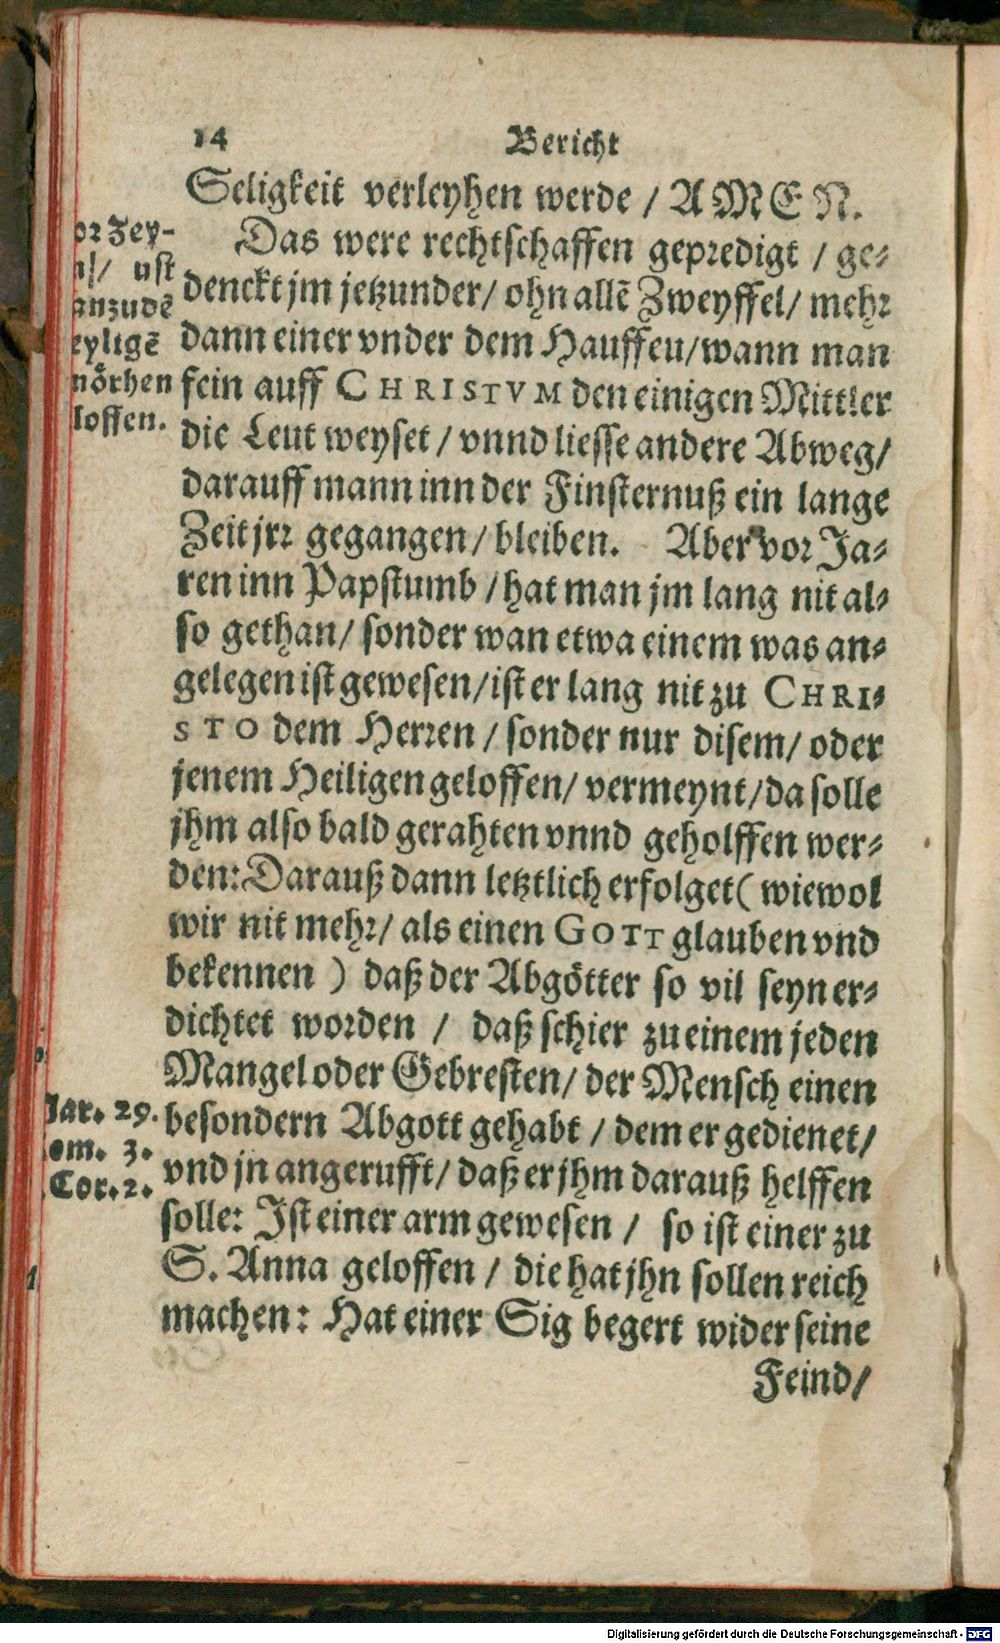 14 Bericht
Seligkeit verleyhen werde / AMEN.
Das were rechtschaffen gepredigt / ge-
denckt jm jetzunder/ ohn allē Zweyffel/ mehr
dann einer vnder dem Hauffeu/wann man
fein auff CHRISTVM den einigen Mittler
die Leut weyset / vnnd liesse andere Abweg/
darauff mann inn der Finsternuß ein lange
Zeit jrr gegangen/ bleiben. Aber vor Ja-
ren inn Papstumb / hat man jm lang nit al-
so gethan/ sonder wan etwa einem was an-
gelegen ist gewesen/ist er lang nit zu CHRI-
STO dem Herren / sonder nur disem/ oder
jenem Heiligen geloffen/ vermeynt/da solle
jhm also bald gerahten vnnd geholffen wer-
den: Darauß dann letztlich erfolget( wiewol
wir nit mehr/ als einen GOTT glauben vnd
bekennen ) daß der Abgötter so vil seyn er-
dichtet worden / daß schier zu einem jeden
Mangel oder Gebresten/ der Mensch einen
besondern Abgott gehabt / dem er gedienet/
vnd jn angerufft/ daß er jhm darauß helffen
solle: Ist einer arm gewesen / so ist einer zu
S. Anna geloffen / die hat jhn sollen reich
machen: Hat einer Sig begert wider seine
Feind/
or Zey-
ust
anzudē
eyligē
nöthen
loffen.
Jar. 29.
om. 3.
Cor. 2.
Digitalisierung gefördert durch die Deutsche Forschungsgemeinschaft - DFG